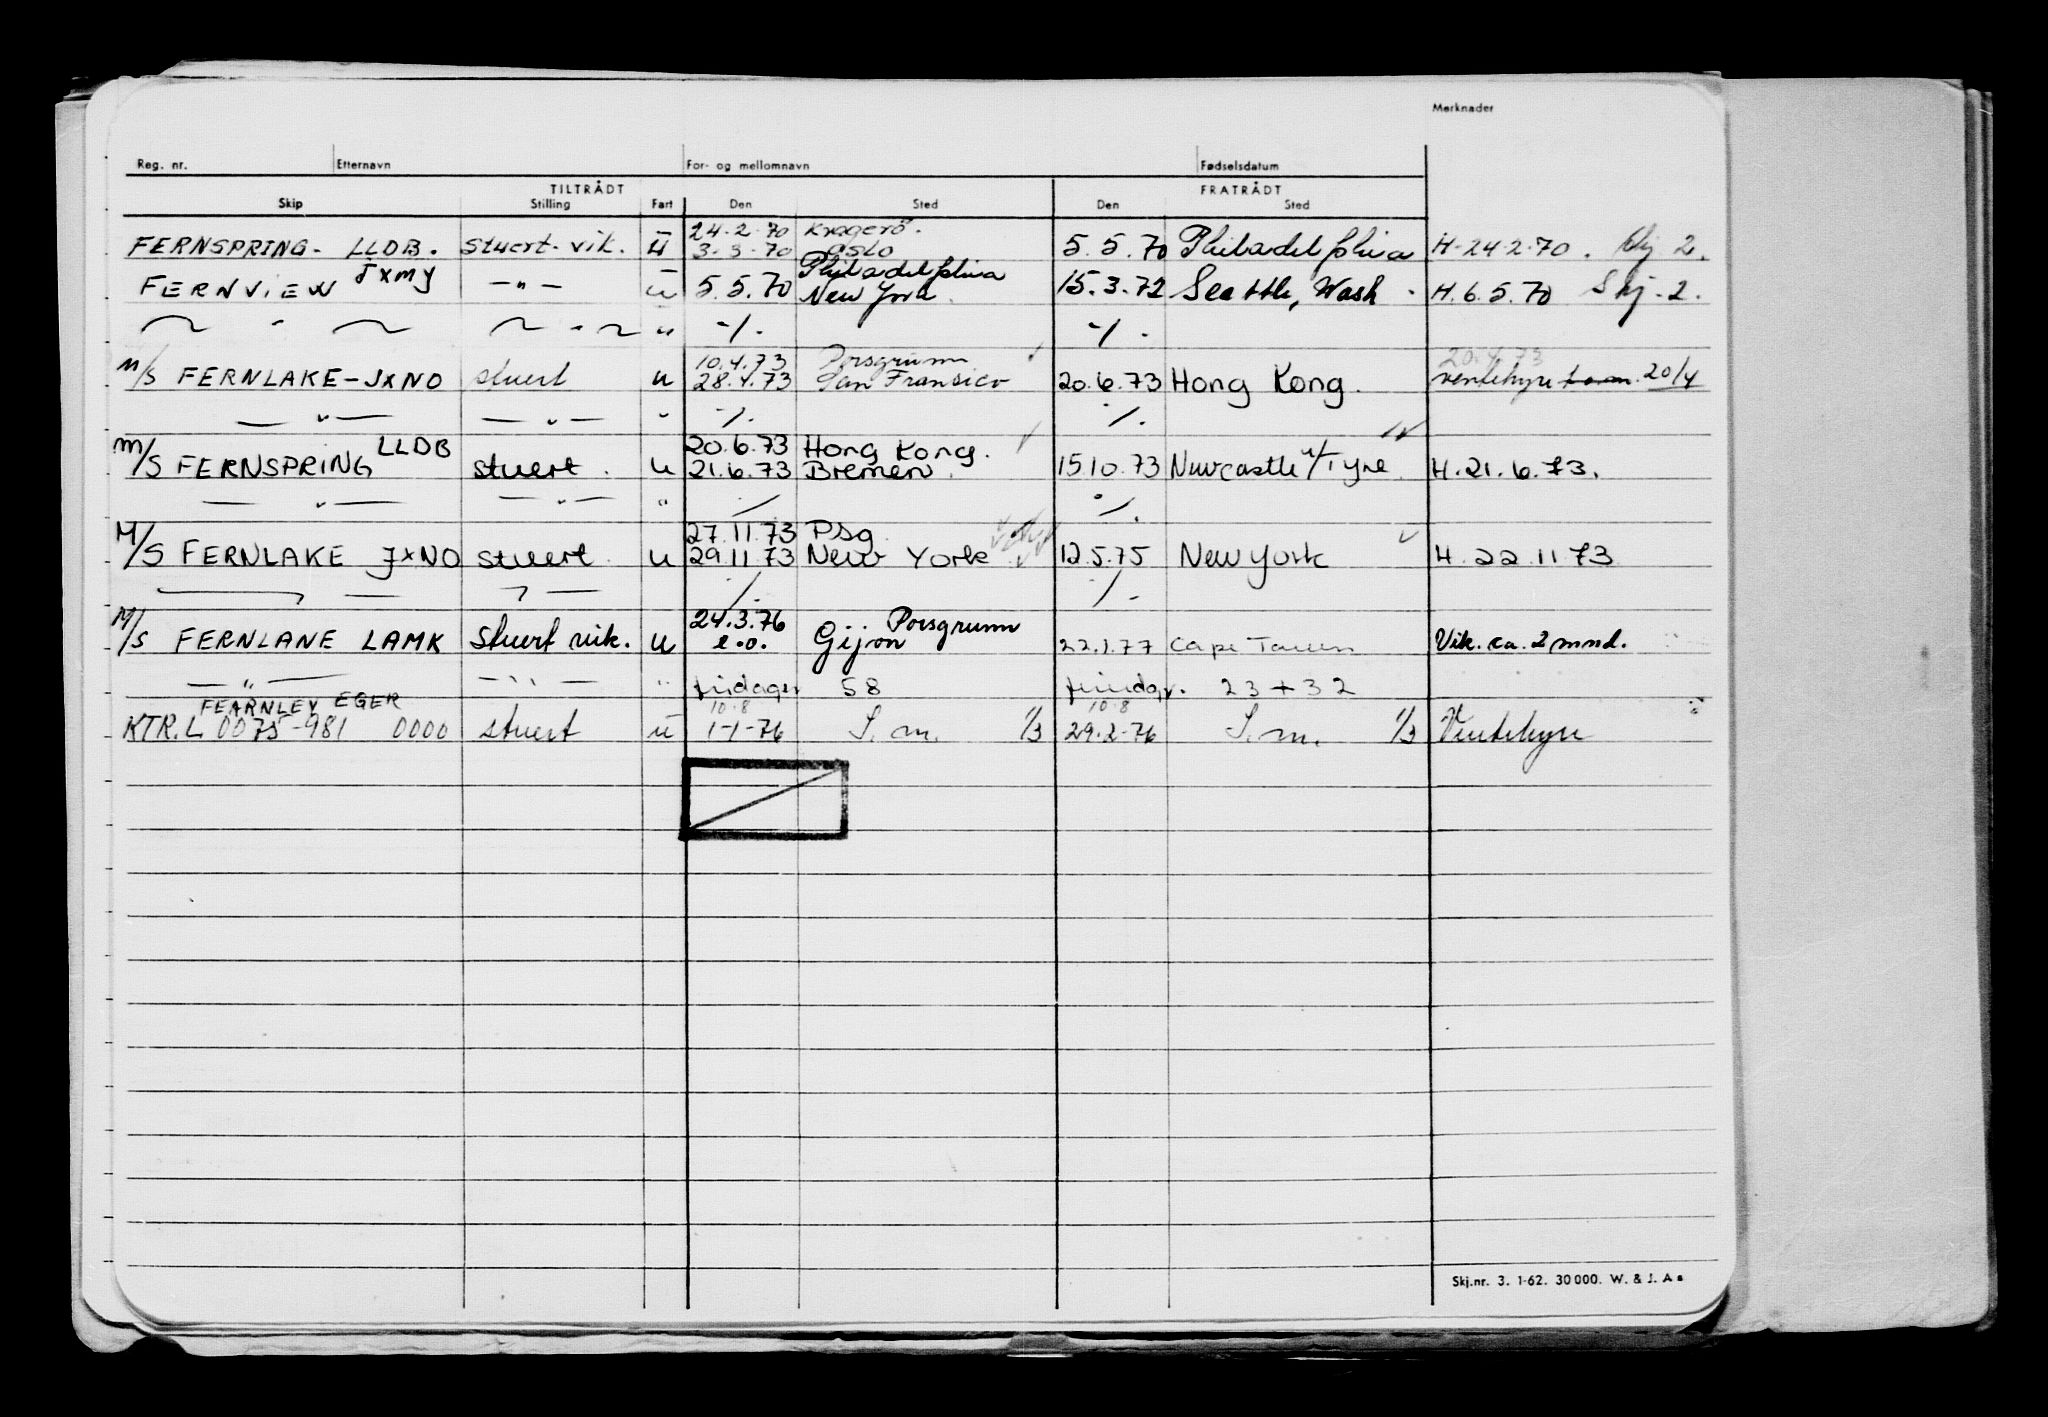 Merknader
Reg. nr. Etternavn For- og mellomnavn Fødselsdatum
TILTRÅDT FRATRÅDT
Skip Stilling Fart Den Sted Den Sted
24-2-70 Kragerø.
FERNSPRING- LLDB. stuert-vik. u 3-3-70 oslo 5.5.70 Philadelphia H-24-2-70. Skj 2.
JXMY Philadelphia
FERNVIEW -"- u 5.5.70 New York. 15.3.72 Seattle, Wash. H.6.5.70 Skj-2.
" " " -/. -/.
10.4.73 Porsgrunn 20.4.73
M/S FERNLAKE-JXNO stuert u 28.4.73 San Fransico 20.6.73 Hong Kong. ventehyre 20/4
— " — — " — " /. /.
LLDB 20.6.73 Hong Kong.
M/S FERNSPRING stuert. u 21.6.73 Bremen. 15.10.73 Newcastle u/Tyne H.21.6.73.
— " — — " — " / /.
27.11.73 Psg
M/S FERNLAKE JXNO stuert. u 29.11.73 New York 12.5.75 New York H.22.11.73
/. /.
24.3.76 Porsgrunn
M/S FERNLANE LAMK Stuert vik. u e.o. Gijon 22.1.77 Cape Town Vik. ca. 2 mnd.
— " — — " — " fridager 58 fridgr. 23+32
FEARNLEY EGER 10.8 10.8
KTR.L 0075-981 0000 stuert u 1-1-76 S.m. 1/3 29-2-76 S.m. 1/3 Ventehyre
Skj.nr. 3. 1-62. 30 000. W. & J. A s